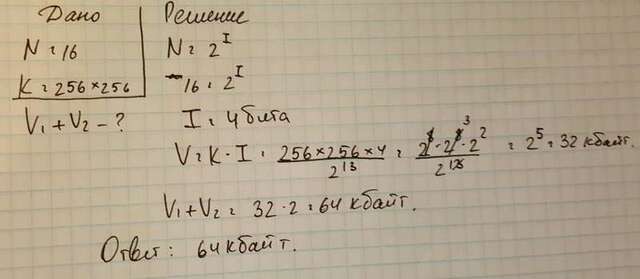 Дано
N = 16
K = 256×256
V₁ + V₂ - ?
Решение
N = 2^I
16 = 2^I
I = 4 бита
V = K · I = 256×256×4 / 2^13 = 2^8 · 2^8 · 2^2 / 2^13 = 2^5 = 32 кбайт.
V₁ + V₂ = 32 · 2 = 64 кбайт.
Ответ: 64 кбайт.